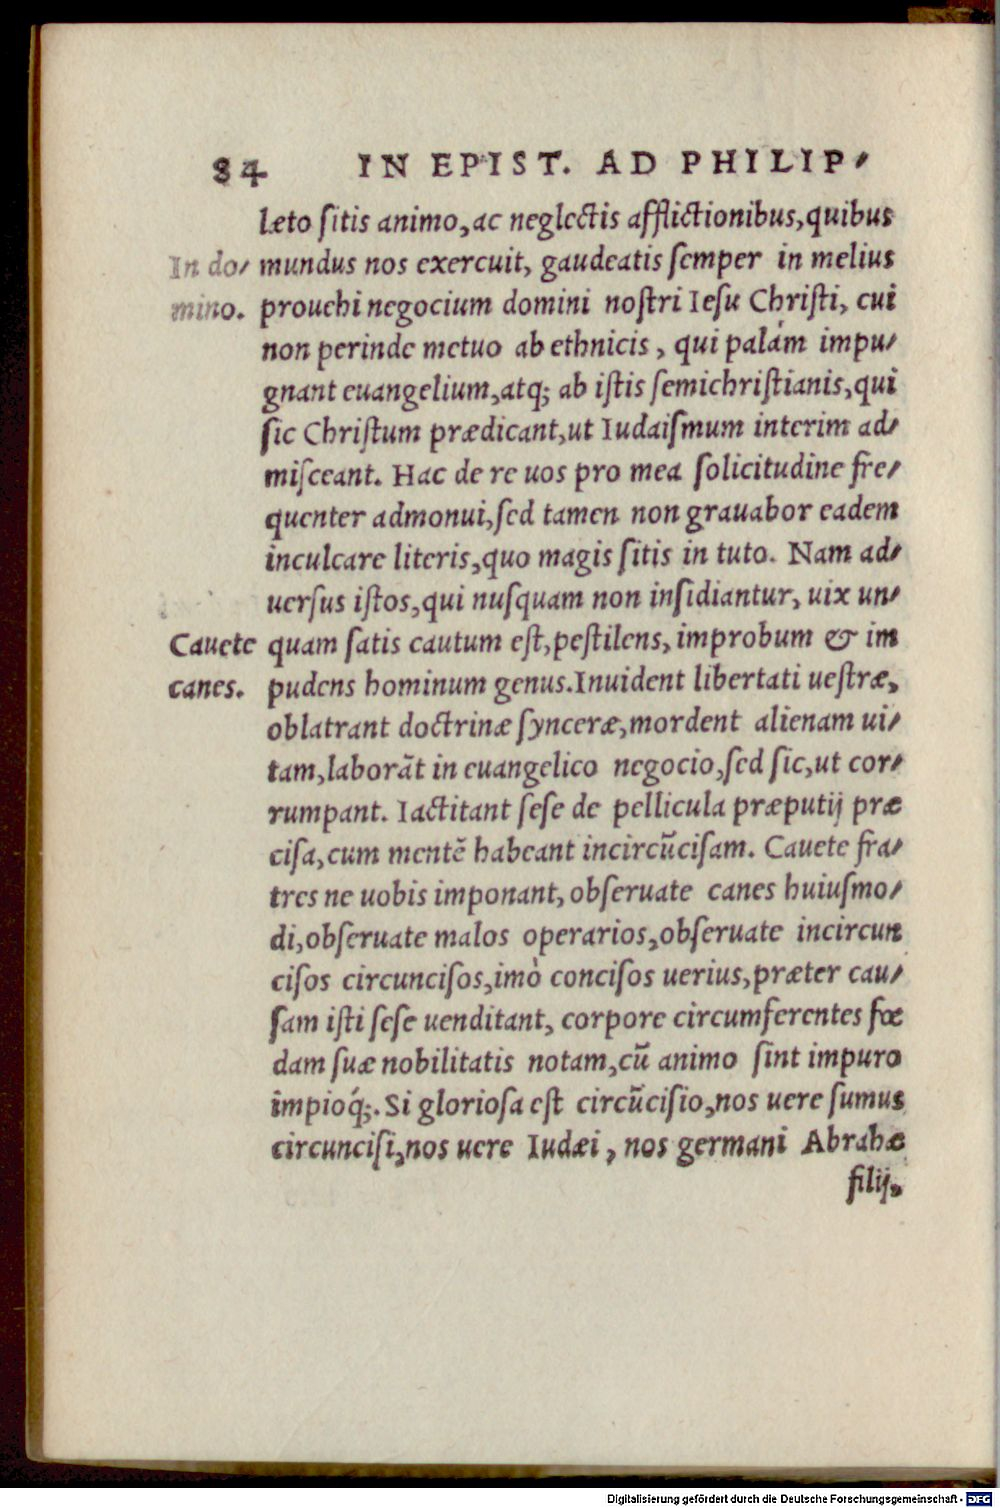 84 IN EPIST. AD PHILIP⸗
læto ſitis animo, ac neglectis afflictionibus, quibus
In do⸗ mundus nos exercuit, gaudeatis ſemper in melius
mino. prouehi negocium domini noſtri Ieſu Chriſti, cui
non perinde metuo ab ethnicis, qui palám impu⸗
gnant euangelium, atq; ab iſtis ſemichriſtianis, qui
ſic Chriſtum prædicant, ut Iudaiſmum interim ad⸗
miſceant. Hac de re uos pro mea ſolicitudine fre⸗
quenter admonui, ſed tamen non grauabor eadem
inculcare literis, quo magis ſitis in tuto. Nam ad⸗
uerſus iſtos, qui nuſquam non inſidiantur, uix un⸗
Cauete quam ſatis cautum eſt, peſtilens, improbum & im
canes. pudens hominum genus. Inuident libertati ueſtræ,
oblatrant doctrinæ ſynceræ, mordent alienam ui⸗
tam, laborãt in euangelico negocio, ſed ſic, ut cor⸗
rumpant. Iactitant ſeſe de pellicula præputij præ
ciſa, cum mentẽ habeant incircũciſam. Cauete fra⸗
tres ne uobis imponant, obſeruate canes huiuſmo⸗
di, obſeruate malos operarios, obſeruate incircun
ciſos circunciſos, imò conciſos uerius, præter cau⸗
ſam iſti ſeſe uenditant, corpore circumferentes fœ
dam ſuæ nobilitatis notam, cũ animo ſint impuro
impioq́;. Si glorioſa eſt circũciſio, nos uere ſumus
circunciſi, nos uere Iudæi, nos germani Abrahæ
filij,
Digitalisierung gefördert durch die Deutsche Forschungsgemeinschaft - DFG